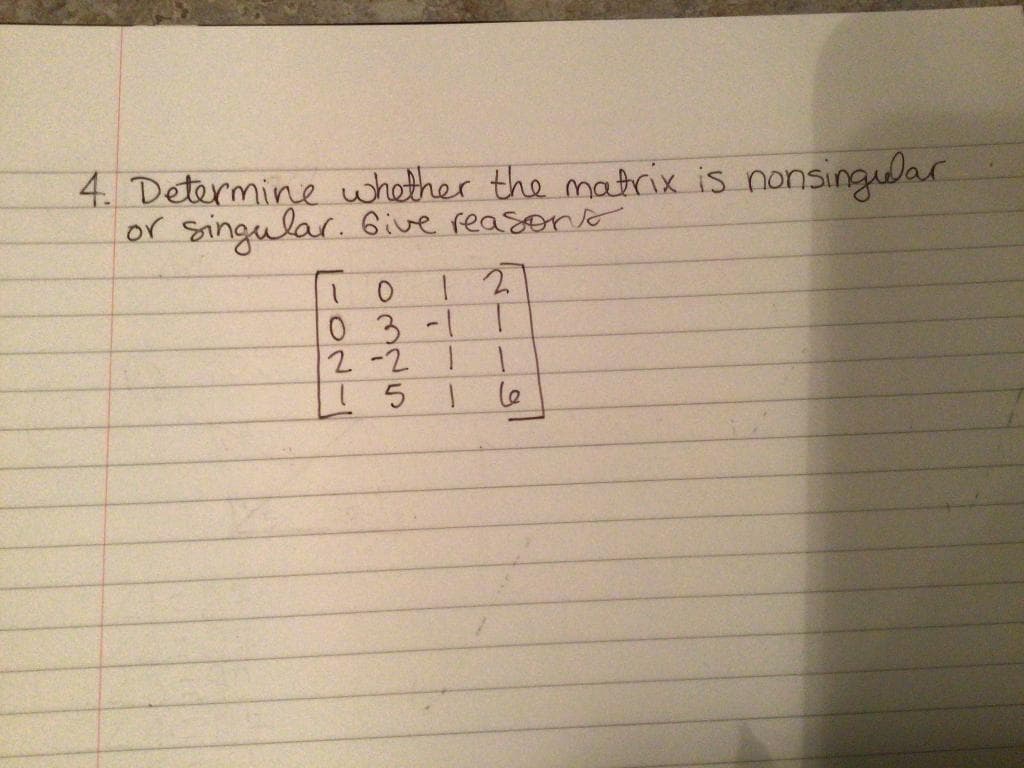 4. Determine whether the matrix is nonsingular
or singular. Give reasons
1 0 1 2
0 3 -1 1
2 -2 1 1
1 5 1 6